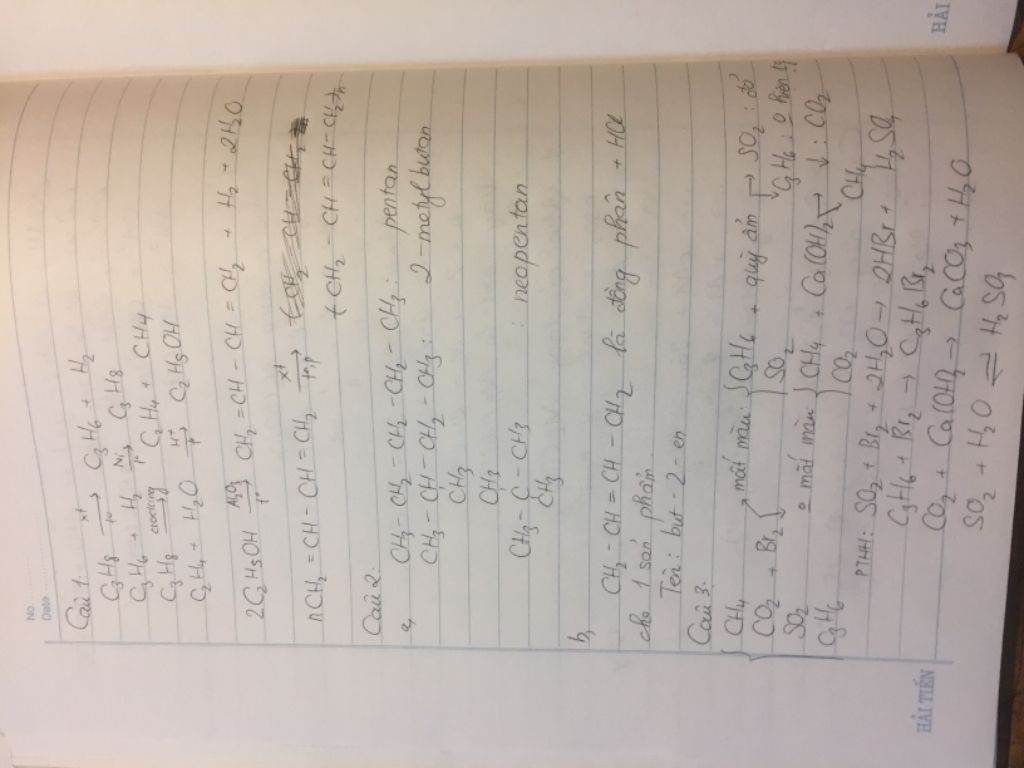 No.
Date
Câu 1:
C3H8 xt→t° C3H6 + H2
C3H6 + H2 Ni→t° C3H8
C3H8 cracking→t° C2H4 + CH4
C2H4 + H2O H+→t° C2H5OH
2C2H5OH Al2O3→t° CH2=CH-CH=CH2 + H2 + 2H2O
nCH2=CH-CH=CH2 xt→t°,p
(-CH2-CH=CH-CH2-)n
Câu 2:
a, CH3-CH2-CH2-CH2-CH3: pentan
CH3-CH-CH2-CH3: 2-metyl butan
CH3
CH3
CH3-C-CH3 : neopentan
CH3
b,
CH2-CH=CH-CH2 là đồng phân + HCl
cho 1 sản phẩm.
Tên: but-2-en
Câu 3:
CH4
CO2
SO2
C3H6
+ Br2
mất màu: C3H6
SO2
+ quỳ ẩm
SO2: đỏ
C3H6: 0 hiện tg
0 mất màu CH4
CO2
+ Ca(OH)2
↓: CO2
CH4
PTHH: SO2 + Br2 + 2H2O → 2HBr + H2SO4
C3H6 + Br2 → C3H6Br2
CO2 + Ca(OH)2 → CaCO3 + H2O
SO2 + H2O ⇌ H2SO3
HẢI TIẾN
HẢI